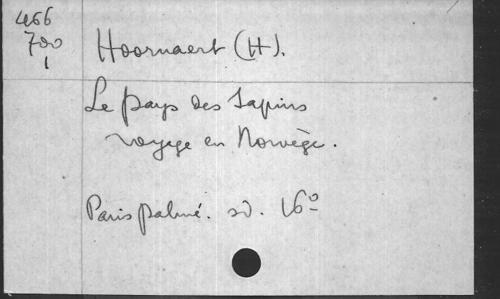 466
700
1
Hoornaert (H).
Le pays des Sapins
voyage en Norvège.
Paris palmé. sd. 16º